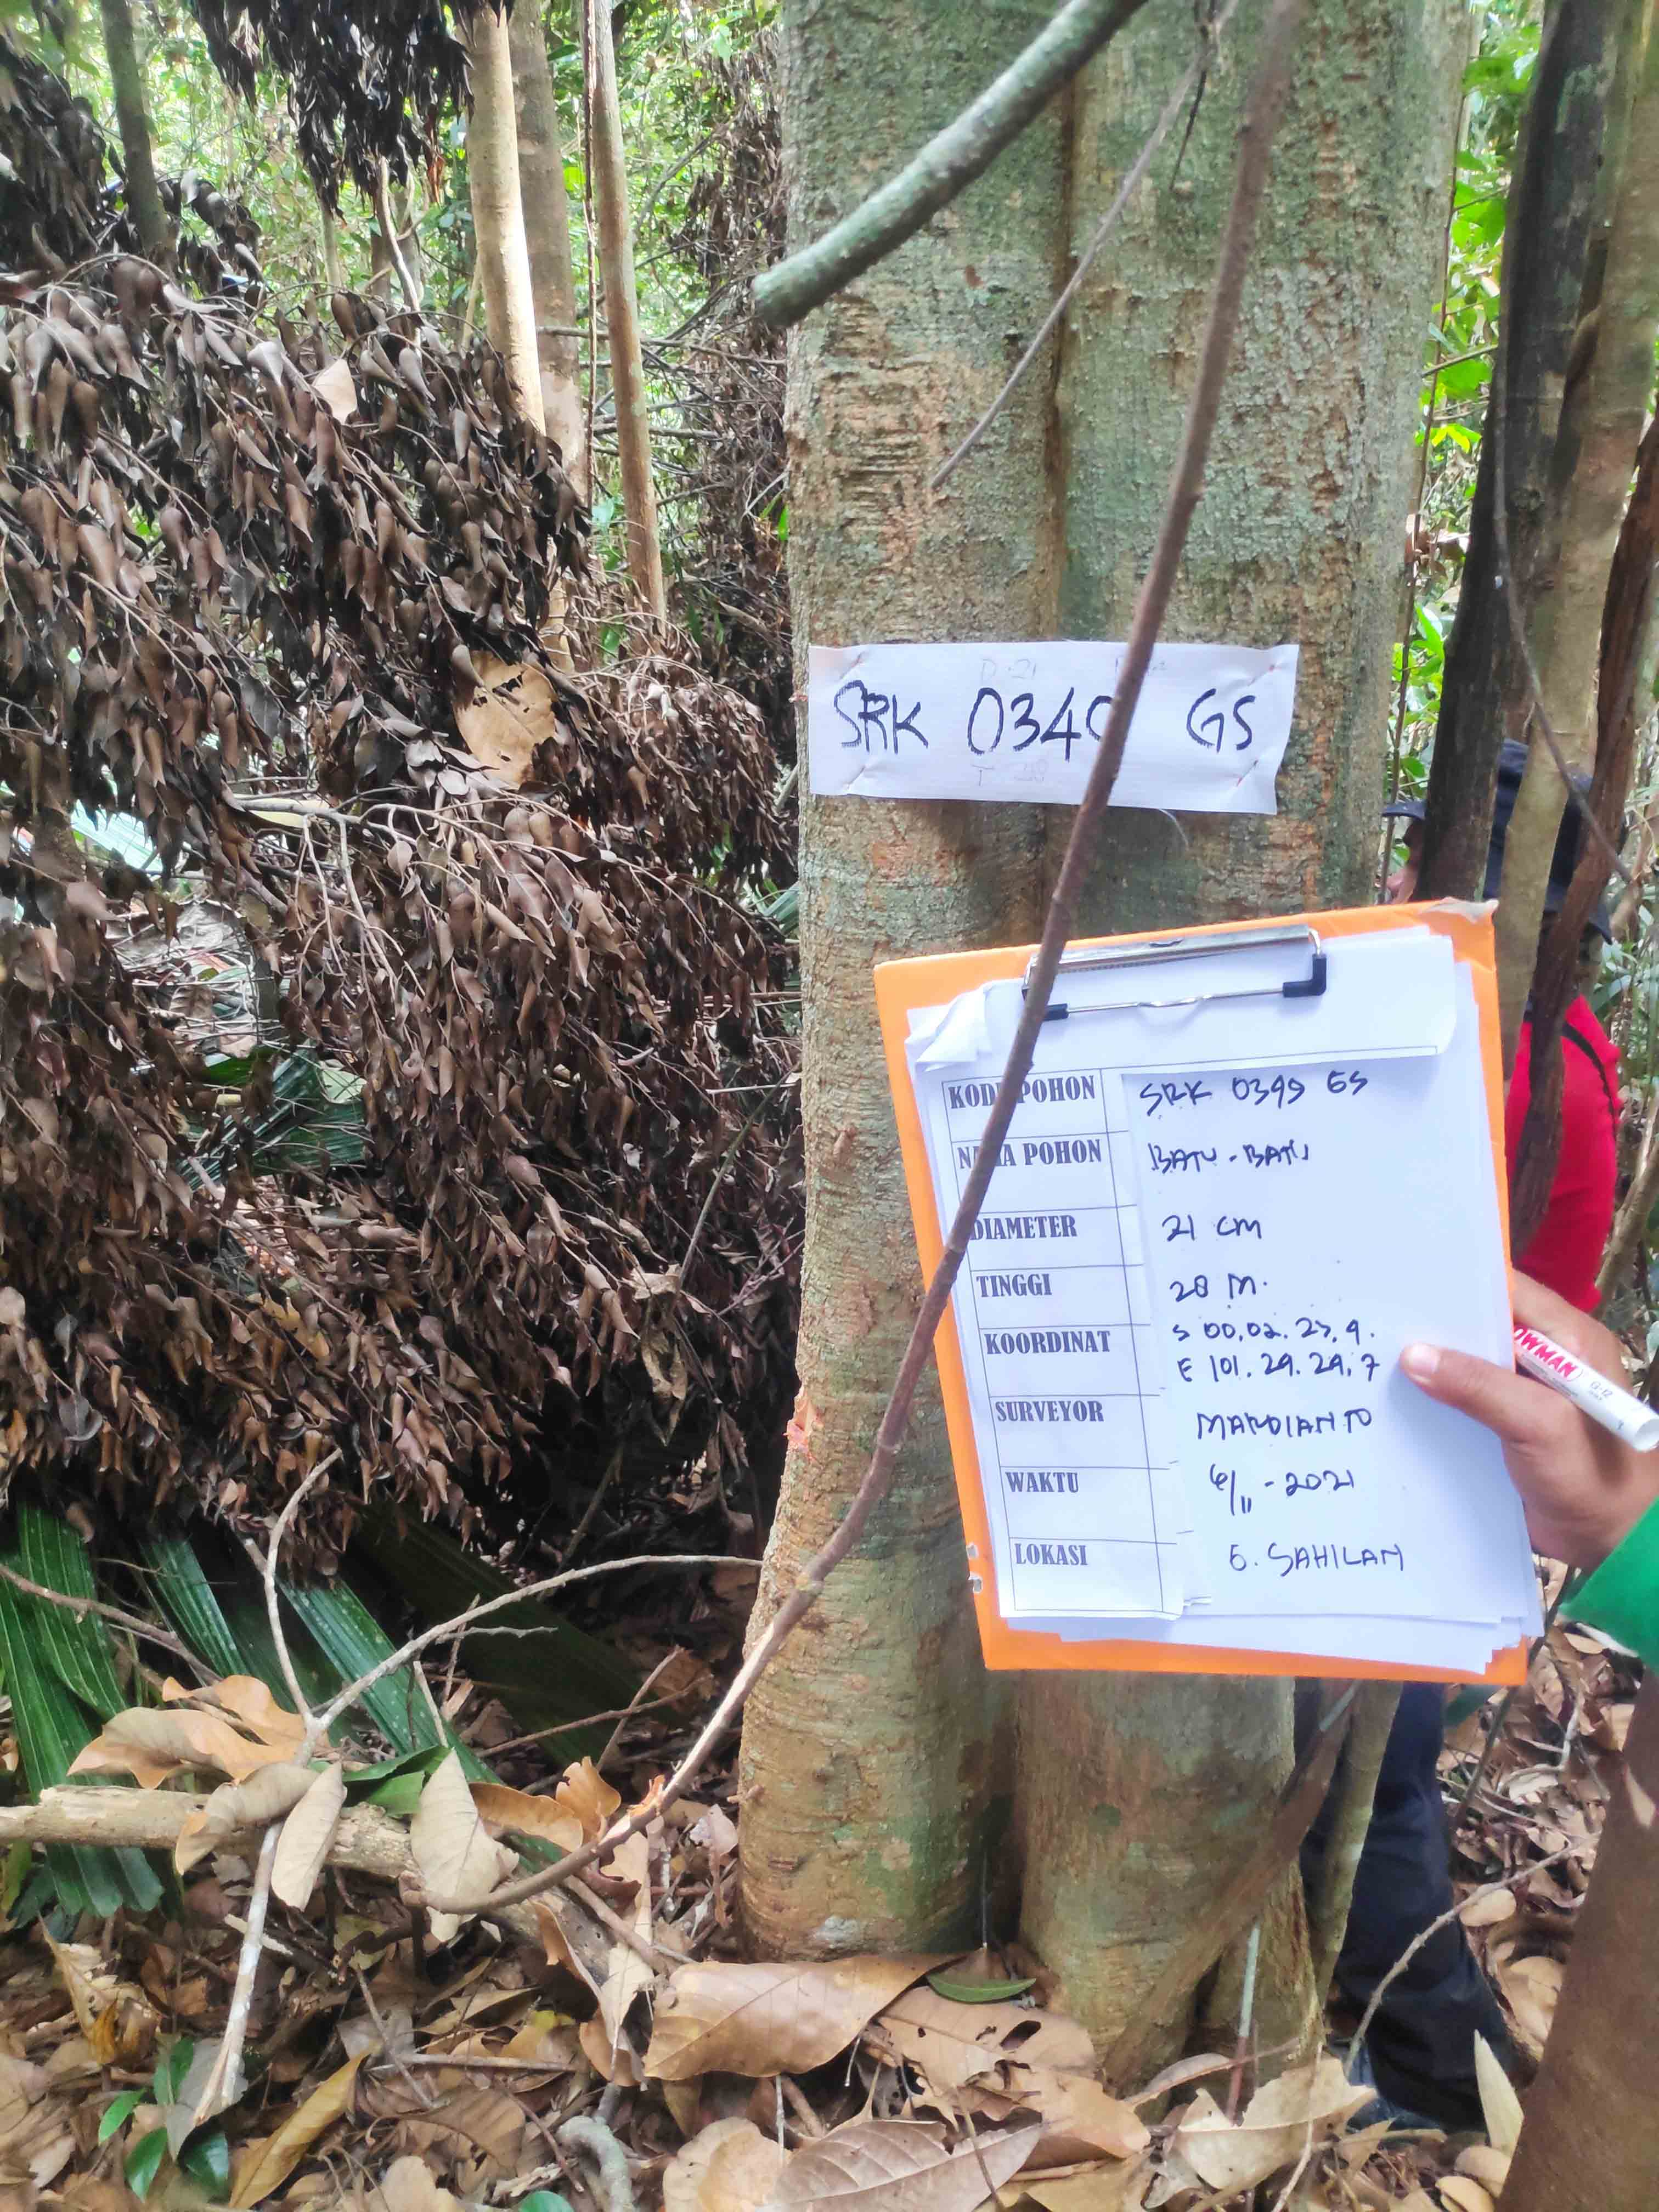 SRK 034 GS
KODE POHON SRK 0349 GS
NAMA POHON BATU-BATU
DIAMETER 21 CM
TINGGI 28 M.
KOORDINAT S 00.02.27.9.
E 101.29.29.7
SURVEYOR MARDIANTO
WAKTU 6/11-2021
LOKASI G. SAHILAN
OWMAN